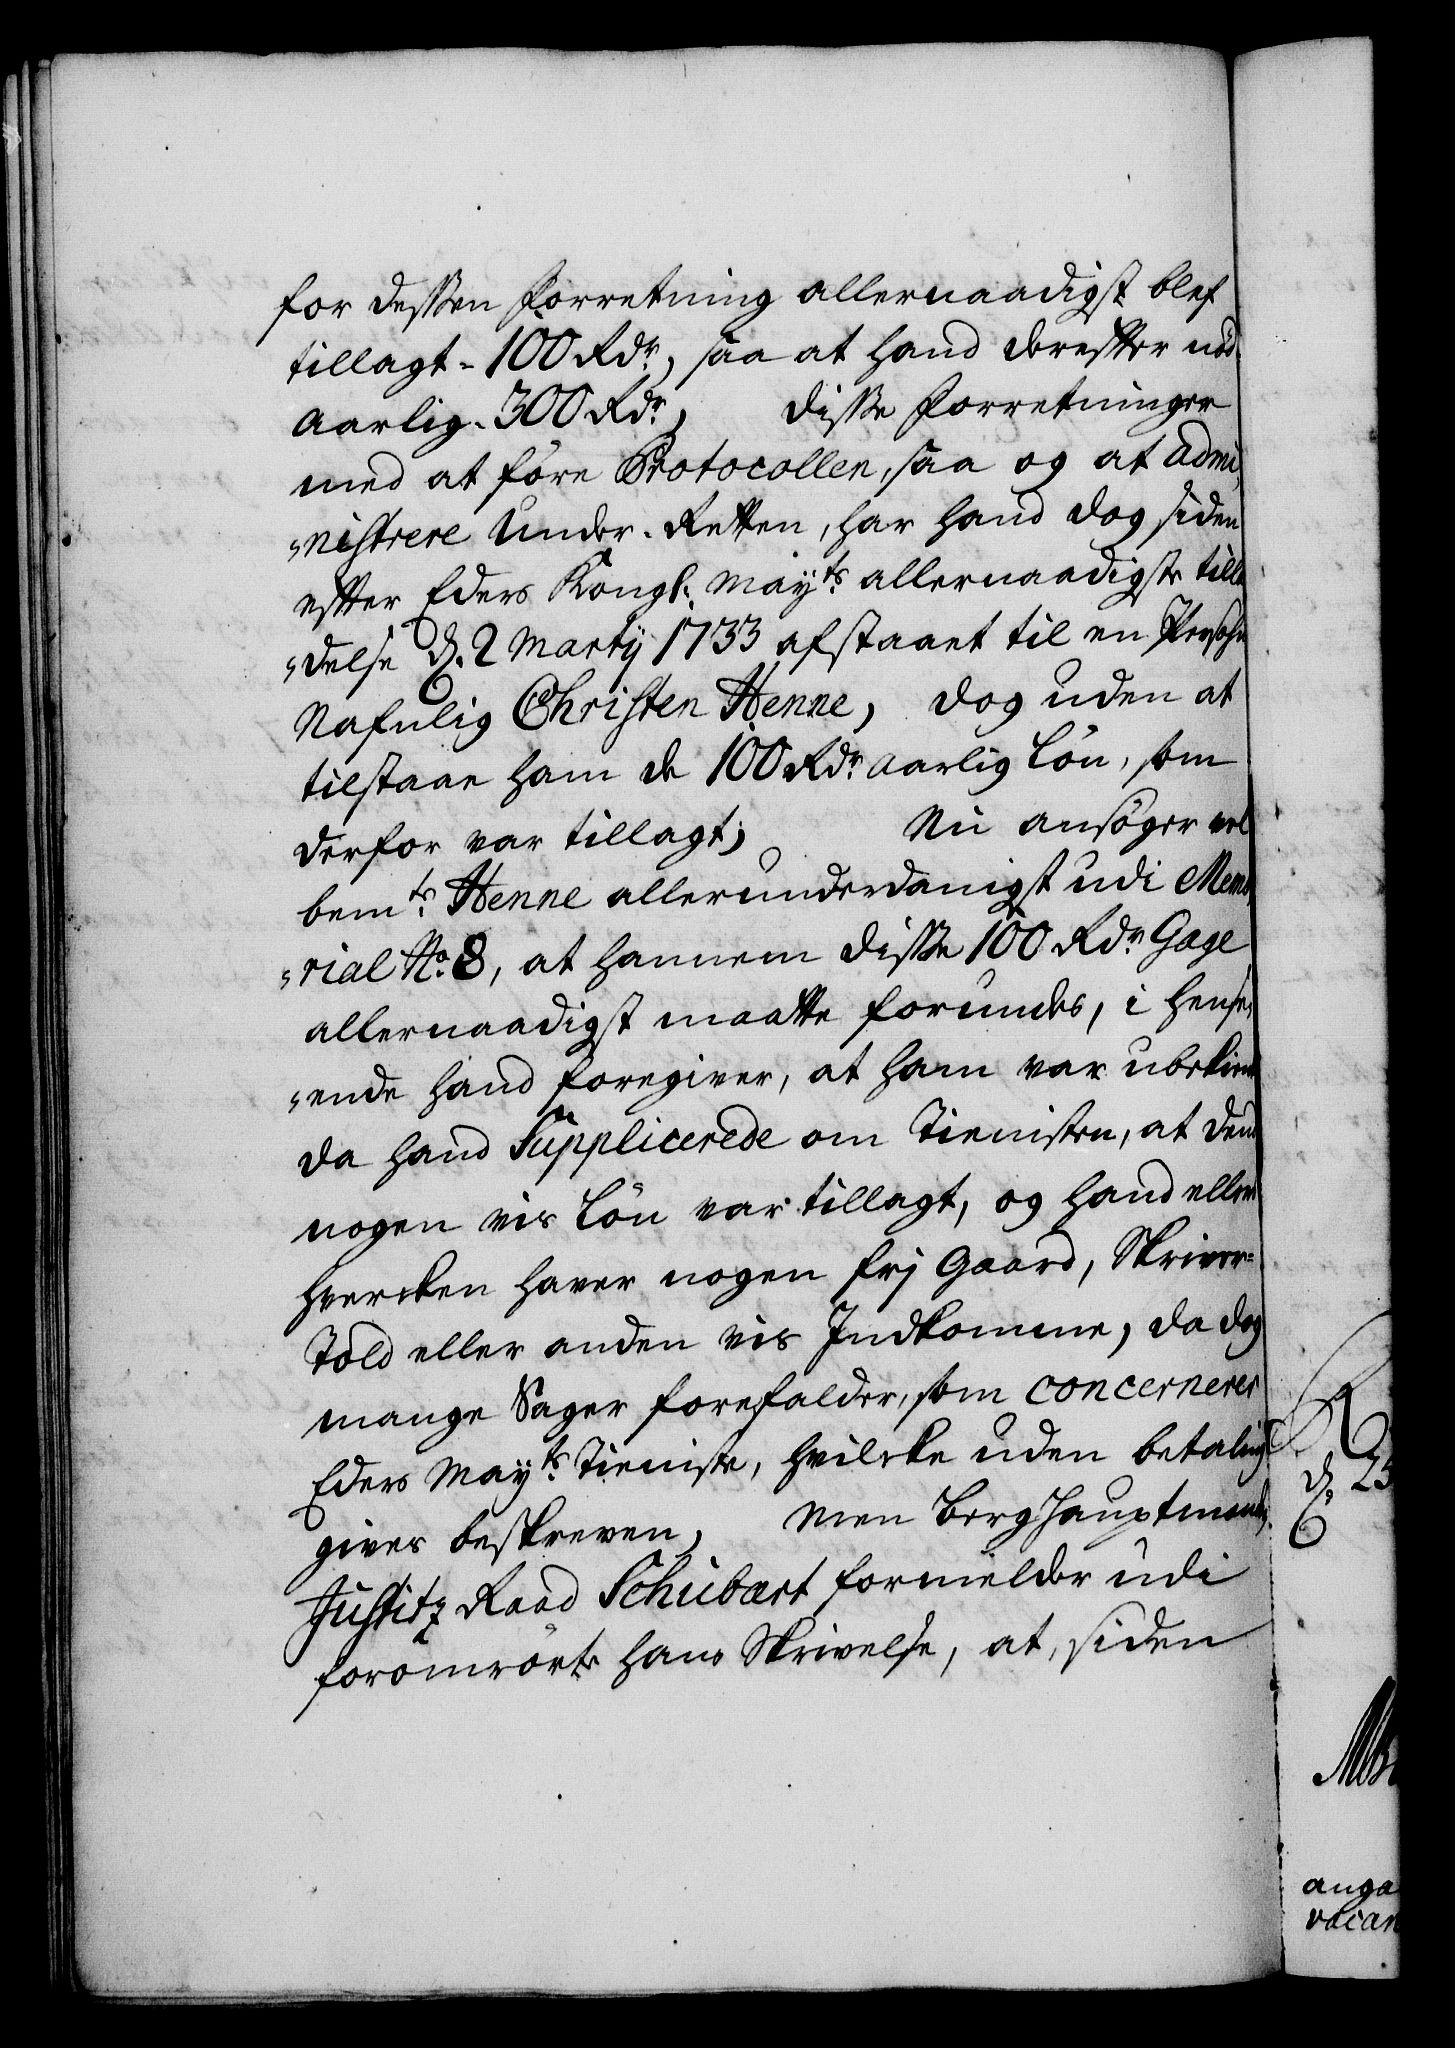 for dessen Forretning allernaadigst blef
tillagt - 100 Rdr, saa at hand derefter nød
aarlig. 300 Rdr, disse Forretninger
med at føre Protocollen, saa og at admi,
"nistrere Under-Retten, har hand dog siden
efter Eders Kongl. Mayts allernaadigste tilla
"delse d. 2 Martij 1733 afstaaet til en Persohn
Nafnlig Christen Henne, dog uden at
tilstaae ham de 100 Rdr aarlig Løn, som
derfor var tillagt; Nu ansøger vel
bemte Henne allerunderdanigst udi Memo,
"rial No 8, at hannem disse 100 Rdr Gage
allernaadigst maatte forundes, i Hense,
"ende hand foregiver, at ham var ubekient
da hand Supplicerede om Tienisten, at dend
nogen vis Løn var tillagt, og hand eller
hvercken haver nogen frj Gaard, Skriver-
Told eller anden vis Indkomme, da dog
mange Sager forefalder, som concernerer
Eders Mayts Tieniste, hvilcke uden betaling
gives beskreven, Men Berghauptmand,
Justitz Raad Schubart formelder udi
foromrørte hans Skrivelse, at, siden
d. 25
anga
vacan